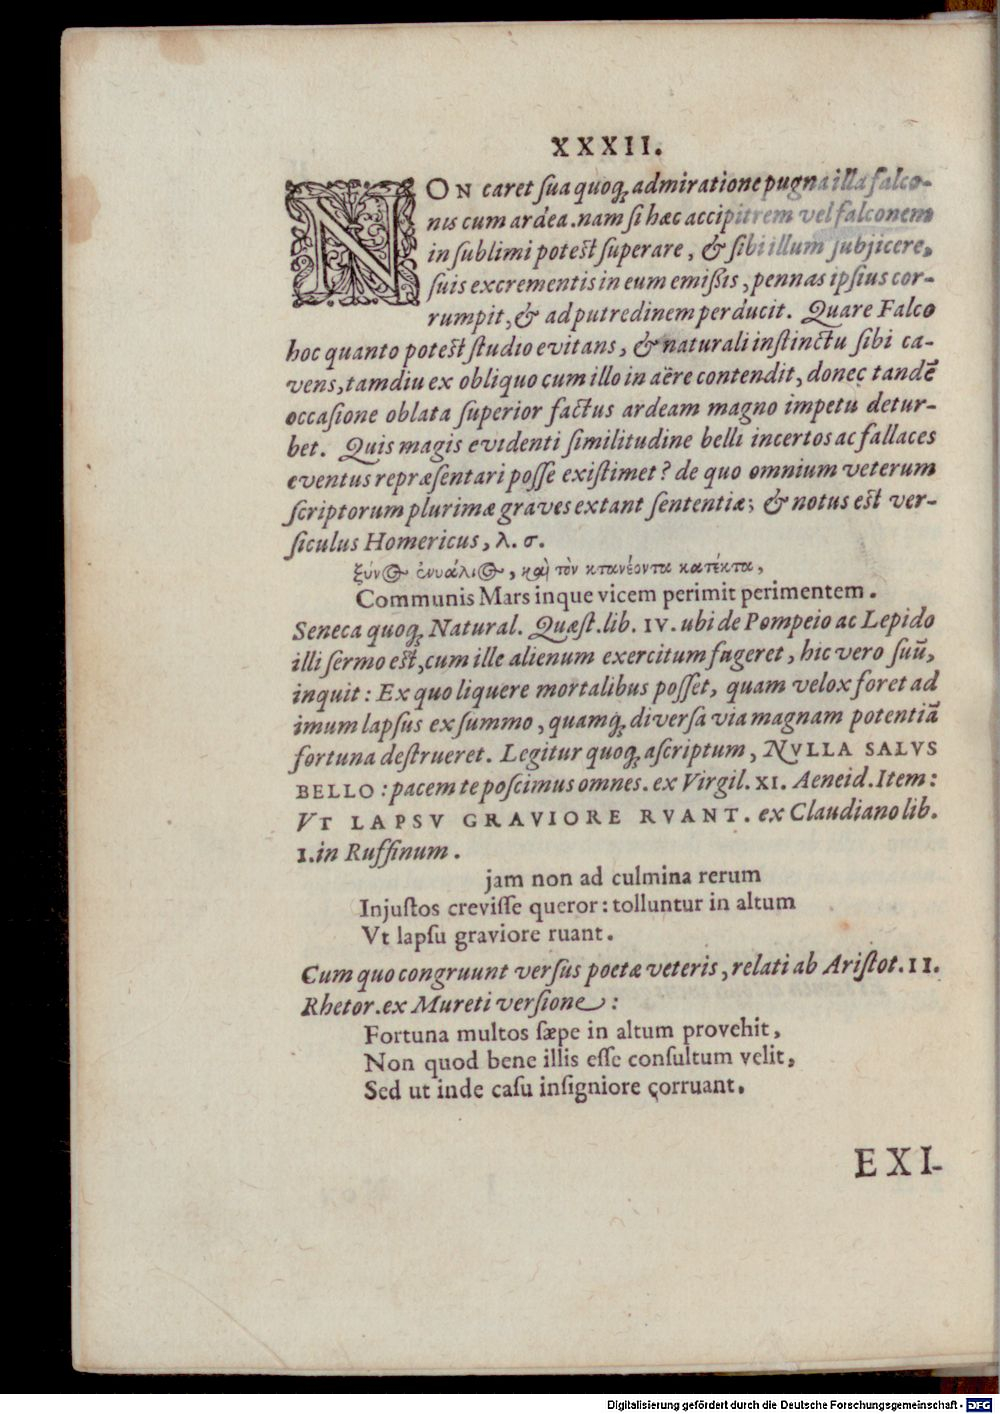 XXXII.
NON caret ſua quoq; admiratione pugna illa falco-
nis cum ardea. nam ſi hæc accipitrem vel falconem
in ſublimi poteſt ſuperare, & ſibi illum ſubjicere,
ſuis excrementis in eum emiſſis, pennas ipſius cor-
rumpit, & ad putredinem perducit. Quare Falco
hoc quanto poteſt ſtudio evitans, & naturali inſtinctu ſibi ca-
vens, tamdiu ex obliquo cum illo in aëre contendit, donec tandẽ
occaſione oblata ſuperior factus ardeam magno impetu detur-
bet. Quis magis evidenti ſimilitudine belli incertos ac fallaces
eventus repræſentari poſſe exiſtimet? de quo omnium veterum
ſcriptorum plurimæ graves extant ſententiæ; & notus eſt ver-
ſiculus Homericus, λ. σ.
ξύνος ἐνυάλιος, καὶ τὸν κτανέοντα κατέκτα,
Communis Mars inque vicem perimit perimentem.
Seneca quoq; Natural. Quæſt. lib. IV. ubi de Pompeio ac Lepido
illi ſermo eſt, cum ille alienum exercitum fugeret, hic vero ſuũ,
inquit: Ex quo liquere mortalibus poſſet, quam velox foret ad
imum lapſus ex ſummo, quamq; diverſa via magnam potentiã
fortuna deſtrueret. Legitur quoq; aſcriptum, NVLLA SALVS
BELLO: pacem te poſcimus omnes. ex Virgil. XI. Aeneid. Item:
VT LAPSV GRAVIORE RVANT. ex Claudiano lib.
I. in Ruffinum.
jam non ad culmina rerum
Injuſtos creviſſe queror: tolluntur in altum
Vt lapſu graviore ruant.
Cum quo congruunt verſus poetæ veteris, relati ab Ariſtot. II.
Rhetor. ex Mureti verſione:
Fortuna multos ſæpe in altum provehit,
Non quod bene illis eſſe conſultum velit,
Sed ut inde caſu inſigniore corruant.
EXI-
Digitalisierung gefördert durch die Deutsche Forschungsgemeinschaft - DFG